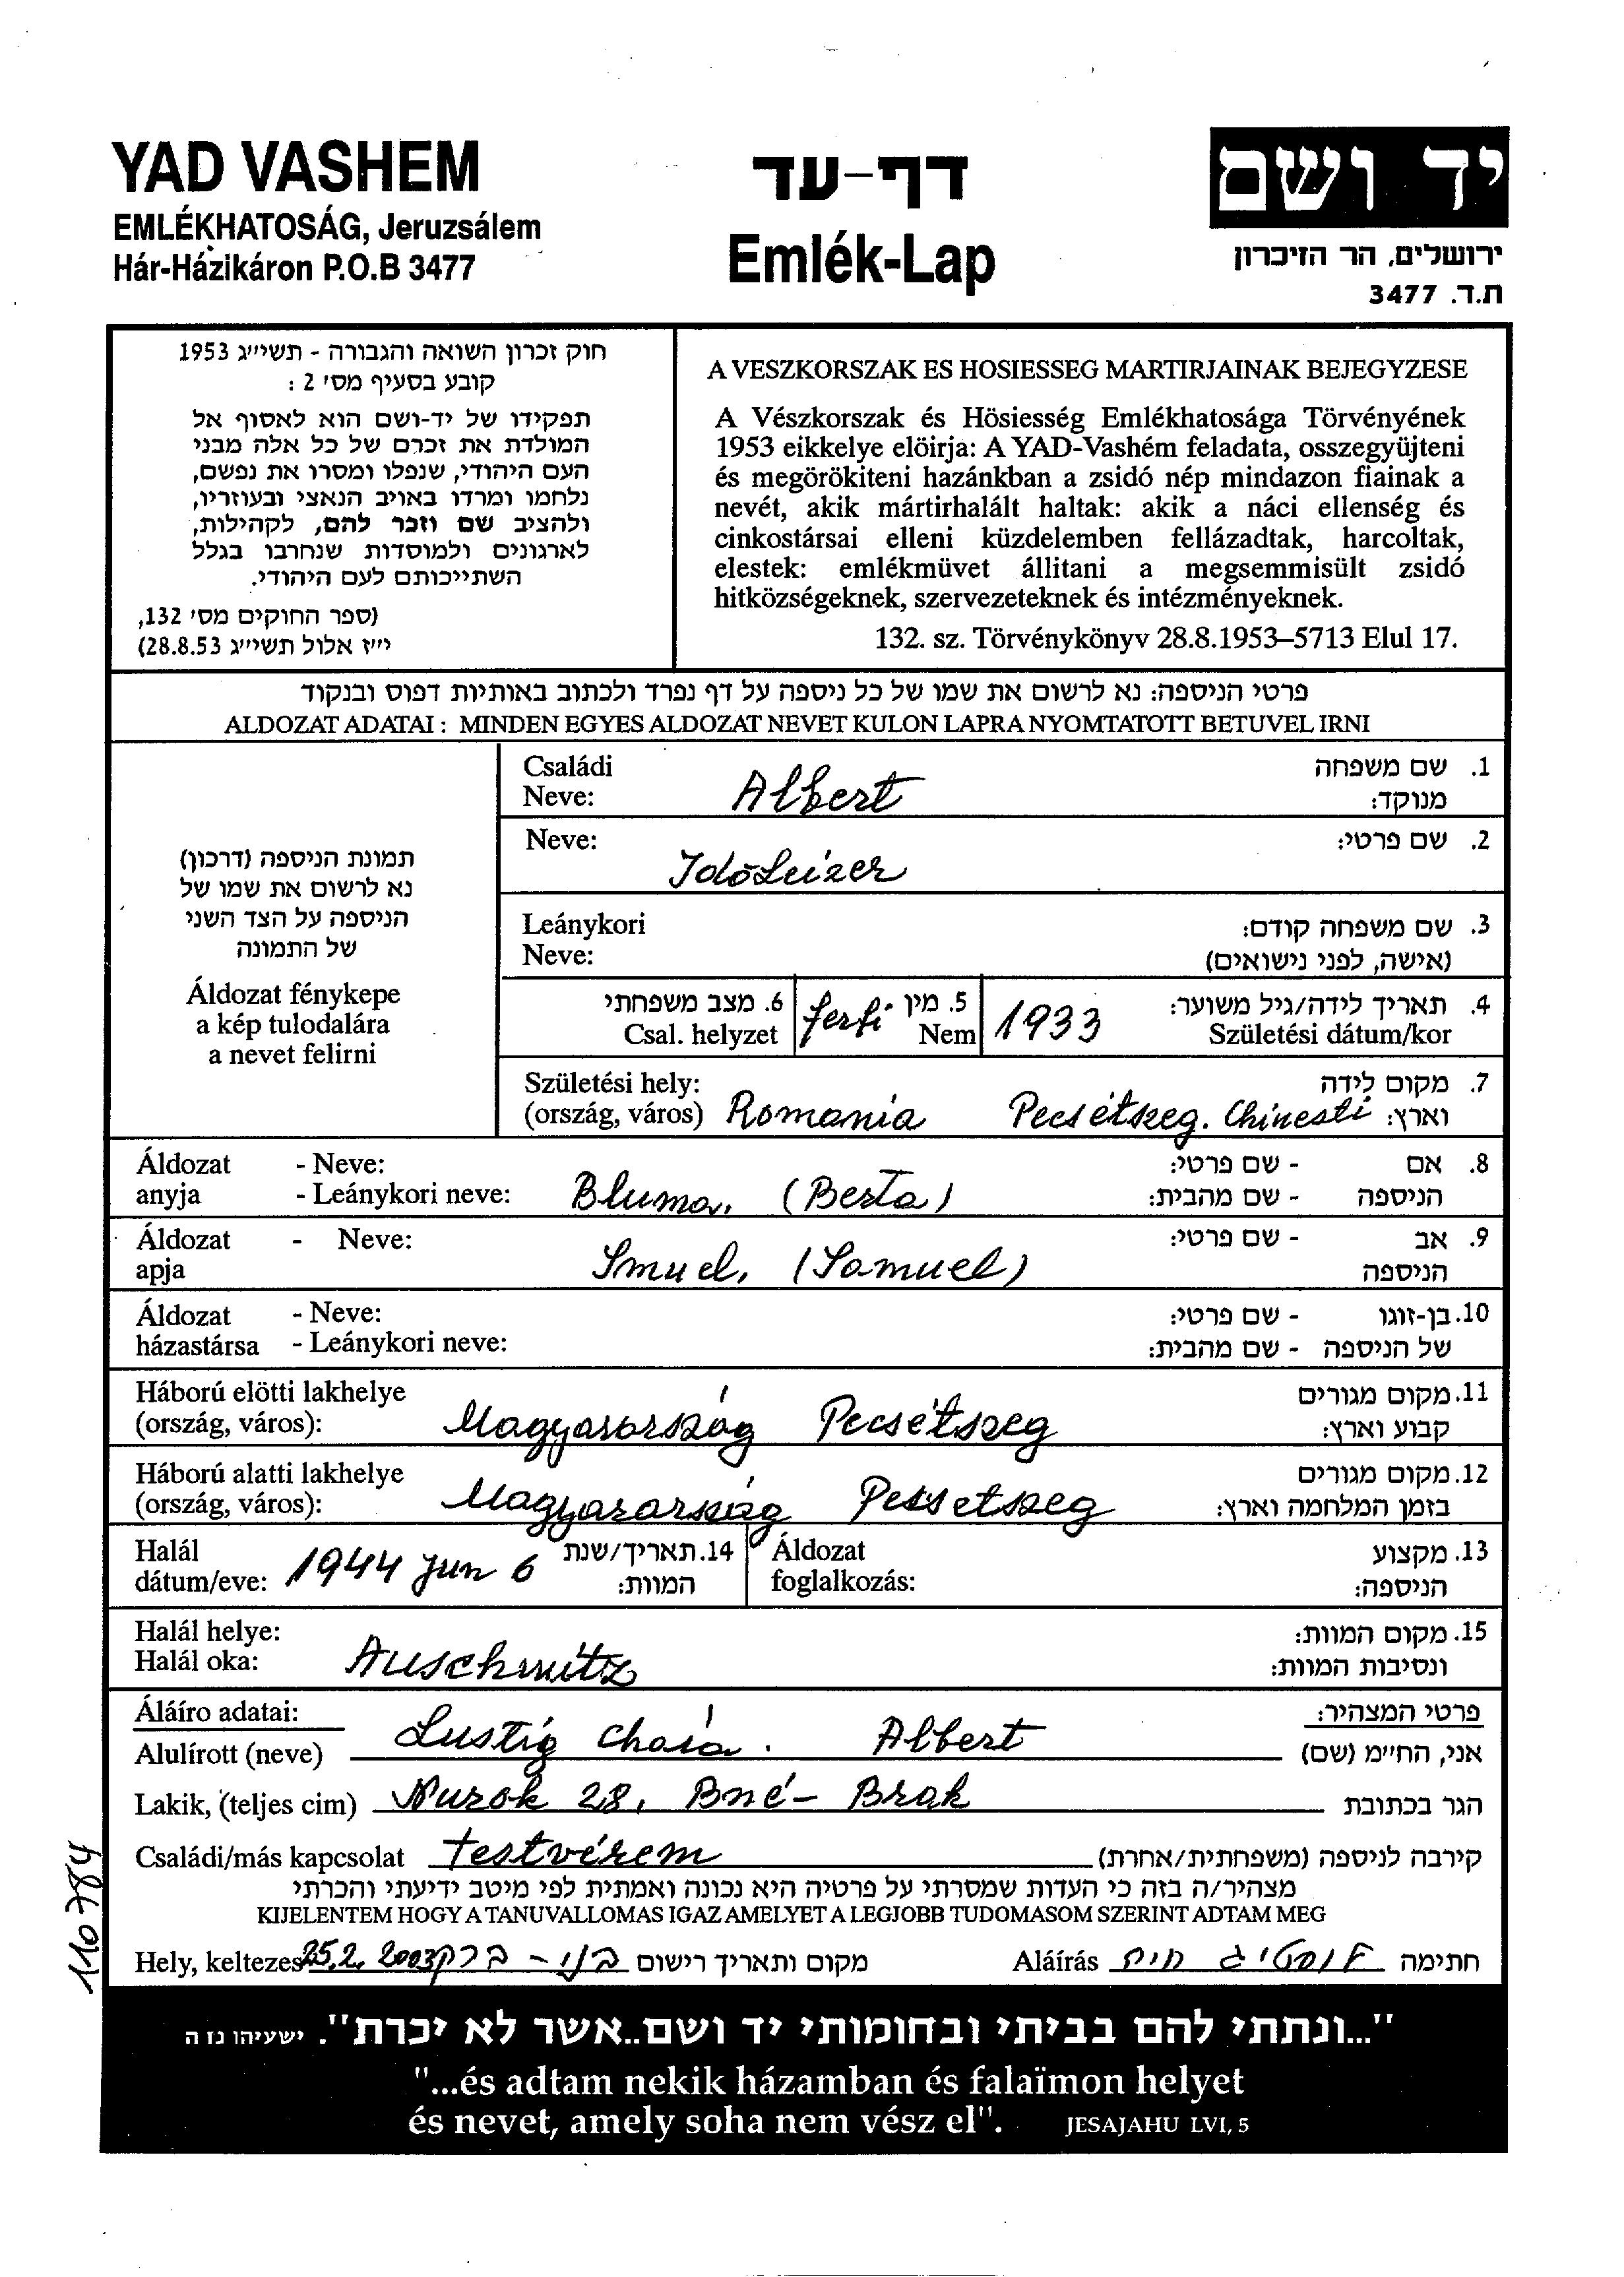 YAD VASHEM
EMLÉKHATOSÁG, Jeruzsálem
Hár-Házikáron P.O.B 3477
דף-עד
Emlék-Lap
יד ושם
ירושלים, הר הזיכרון
ת.ד. 3477
חוק זכרון השואה והגבורה - תשי״ג 1953
קובע בסעיף מס׳ 2 :
תפקידו של יד-ושם הוא לאסוף אל
המולדת את זכרם של כל אלה מבני
העם היהודי, שנפלו ומסרו את נפשם,
נלחמו ומרדו באויב הנאצי ובעוזריו,
ולהציב שם וזכר להם, לקהילות,
לארגונים ולמוסדות שנחרבו בגלל
השתייכותם לעם היהודי.
(ספר החוקים מס׳ 132,
י״ז אלול תשי״ג 28.8.53)
A VESZKORSZAK ES HOSIESSEG MARTIRJAINAK BEJEGYZESE
A Vészkorszak és Hösiesség Emlékhatosága Törvényének
1953 eikkelye elöirja: A YAD-Vashém feladata, osszegyüjteni
és megörökiteni hazánkban a zsidó nép mindazon fiainak a
nevét, akik mártirhalált haltak: akik a náci ellenség és
cinkostársai elleni küzdelemben fellázadtak, harcoltak,
elestek: emlékmüvet állitani a megsemmisült zsidó
hitközségeknek, szervezeteknek és intézményeknek.
132. sz. Törvénykönyv 28.8.1953–5713 Elul 17.
פרטי הניספה: נא לרשום את שמו של כל ניספה על דף נפרד ולכתוב באותיות דפוס ובנקוד
ALDOZAT ADATAI : MINDEN EGYES ALDOZAT NEVET KULON LAPRA NYOMTATOTT BETUVEL IRNI
תמונת הניספה (דרכון)
נא לרשום את שמו של
הניספה על הצד השני
של התמונה
Áldozat fénykepe
a kép tulodalára
a nevet felirni
Családi Albert 1. שם משפחה
Neve: מנוקד:
Neve: 2. שם פרטי:
Idó Leizer
Leánykori 3. שם משפחה קודם:
Neve: (אישה, לפני נישואים)
6. מצב משפחתי ferfi 5. מין 1933 4. תאריך לידה/גיל משוער:
Csal. helyzet Nem Születési dátum/kor
Születési hely: 7. מקום לידה
(ország, város) Romania Pecsétszeg. Chinesti וארץ:
Áldozat - Neve: 8. אם - שם פרטי:
anyja - Leánykori neve: Bluma, (Berta) הניספה - שם מהבית:
Áldozat - Neve: 9. אב - שם פרטי:
apja Smuel, (Samuel) הניספה
Áldozat - Neve: 10. בן-זוגו - שם פרטי:
házastársa - Leánykori neve: של הניספה - שם מהבית:
Háború elötti lakhelye 11. מקום מגורים
(ország, város): Magyarország Pecsétszeg קבוע וארץ:
Háború alatti lakhelye 12. מקום מגורים
(ország, város): Magyarország Pessetszeg בזמן המלחמה וארץ:
Halál 1944 jun 6 14. תאריך/שנת Áldozat 13. מקצוע
dátum/eve: המוות: foglalkozás: הניספה:
Halál helye: 15. מקום המוות:
Halál oka: Auschwitz ונסיבות המוות:
Áláíro adatai: פרטי המצהיר:
Alulírott (neve) Lustig Chaia. Albert אני, החי״מ (שם)
Lakik, (teljes cim) Nurok 28, Bné-Brak הגר בכתובת
Családi/más kapcsolat testvérem קירבה לניספה (משפחתית/אחרת)
מצהיר/ה בזה כי העדות שמסרתי על פרטיה היא נכונה ואמתית לפי מיטב ידיעתי והכרתי
KIJELENTEM HOGY A TANUVALLOMAS IGAZ AMELYET A LEGJOBB TUDOMASOM SZERINT ADTAM MEG
Hely, keltezes 25.2. 2003 בני-ברק מקום ותאריך רישום Aláírás לוסטיג חיה חתימה
110784
"...ונתתי להם בביתי ובחומותי יד ושם..אשר לא יכרת". ישעיהו נז ה
"...és adtam nekik házamban és falaïmon helyet
és nevet, amely soha nem vész el". JESAJAHU LVI, 5